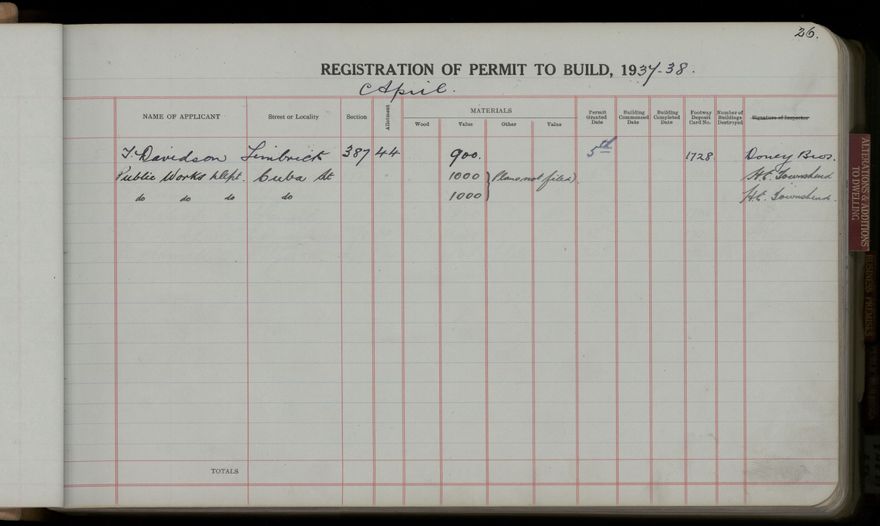 26.
REGISTRATION OF PERMIT TO BUILD, 1937-38.
April.
NAME OF APPLICANT Street or Locality Section Allotment MATERIALS Wood Value Other Value Permit Granted Date Building Commenced Date Building Completed Date Footway Deposit Card No. Number of Buildings Destroyed Signature of Inspector
T. Davidson Limbrick 387 44 900. 5th 1728 Doney Bros.
Public Works Dept. Cuba St 1000 (Plans not filed) H.E. Townshend
do do do do 1000 H.E. Townshend.
TOTALS
ALTERATIONS & ADDITIONS
TO DWELLING